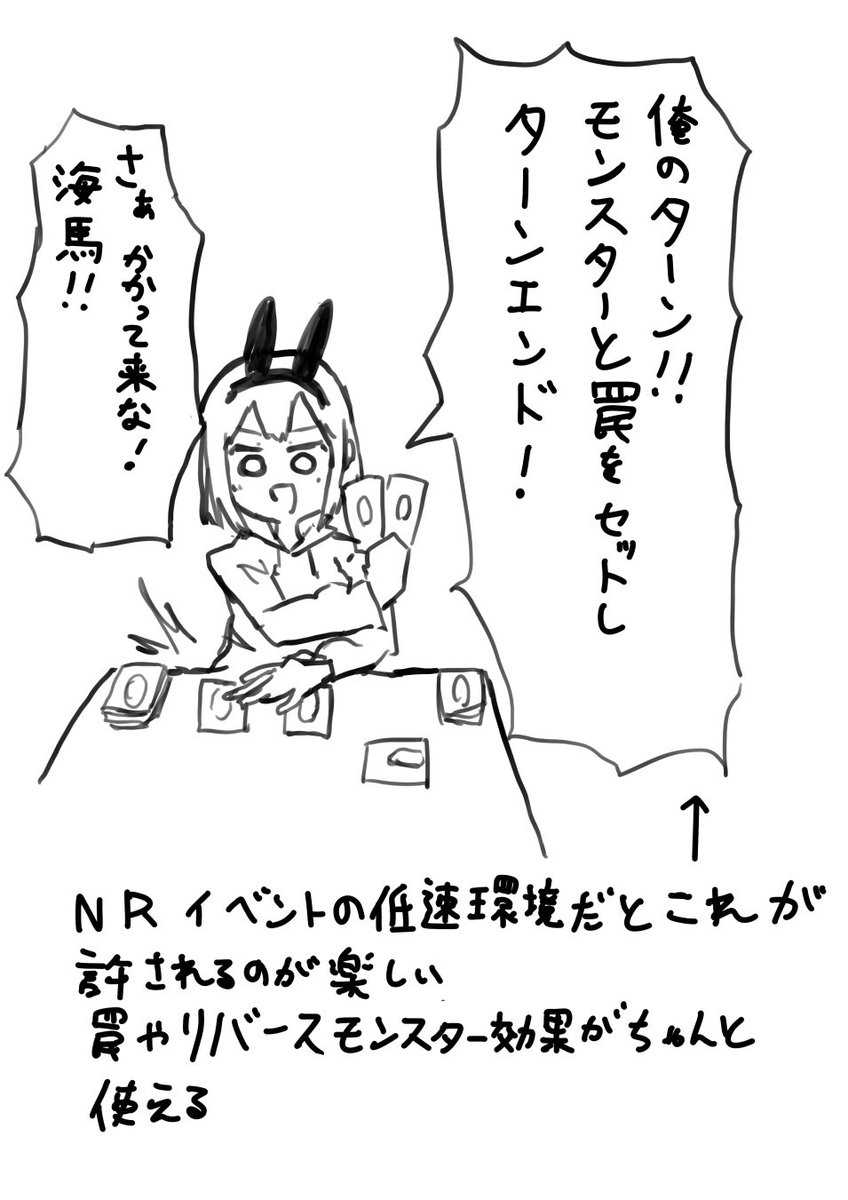 俺のターン!!
モンスターと罠をセットし
ターンエンド!
さぁ かかって来な!
海馬!!
↑
NRイベントの低速環境だとこれが
許されるのが楽しい
罠やリバースモンスター効果がちゃんと
使える